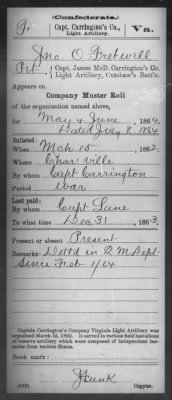 (Confederate.)
F Capt. Carrington's Co., Va.
Light Artillery.
Jno. O. Fretwell
Pvt, Capt. James McD. Carrington's Co.
Light Artillery, Cutshaw's Batt'n.
Appears on
Company Muster Roll
of the organization named above,
for May & June, 1864.
Dated July 8, 1864
Enlisted:
When Mch 15, 1862.
Where Char'ville
By whom Capt Carrington
Period war
Last paid:
By whom Capt Lane
To what time Dec 31, 1863.
Present or absent Present
Remarks: Det'd in Q M Dept
Since Feb 1/64
Captain Carrington's Company Virginia Light Artillery was
organized March 1862. It served in various field battalions
of reserve artillery which were composed of independent bat-
teries from various States.
Book mark:
(642)
Copyist.